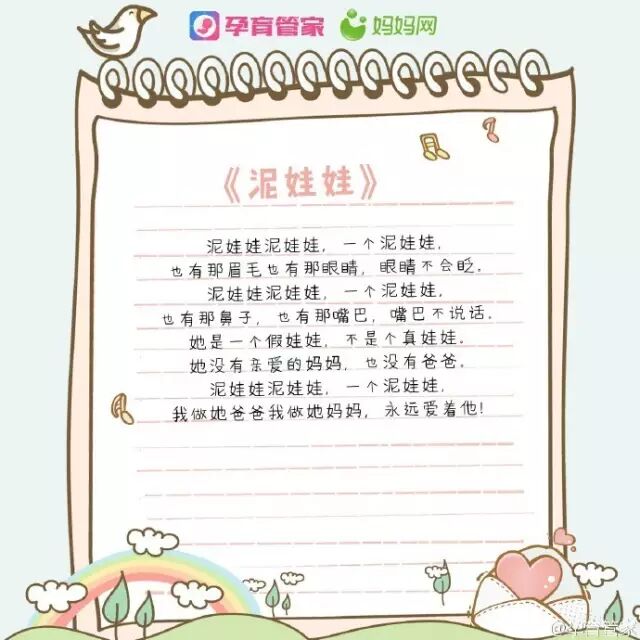 孕育管家 妈妈网
《泥娃娃》
泥娃娃泥娃娃，一个泥娃娃，
也有那眉毛也有那眼睛，眼睛不会眨。
泥娃娃泥娃娃，一个泥娃娃，
也有那鼻子，也有那嘴巴，嘴巴不说话。
她是一个假娃娃，不是个真娃娃。
她没有亲爱的妈妈，也没有爸爸。
泥娃娃泥娃娃，一个泥娃娃，
我做她爸爸我做她妈妈，永远爱着他！